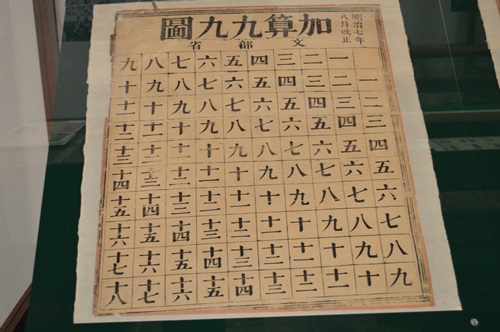 明治七年
八月改正
加算九九圖
文部省
一 二 三 四 五 六 七 八 九
一 二 三 四 五 六 七 八 九 十
二 三 四 五 六 七 八 九 十 十一
三 四 五 六 七 八 九 十 十一 十二
四 五 六 七 八 九 十 十一 十二 十三
五 六 七 八 九 十 十一 十二 十三 十四
六 七 八 九 十 十一 十二 十三 十四 十五
七 八 九 十 十一 十二 十三 十四 十五 十六
八 九 十 十一 十二 十三 十四 十五 十六 十七
九 十 十一 十二 十三 十四 十五 十六 十七 十八